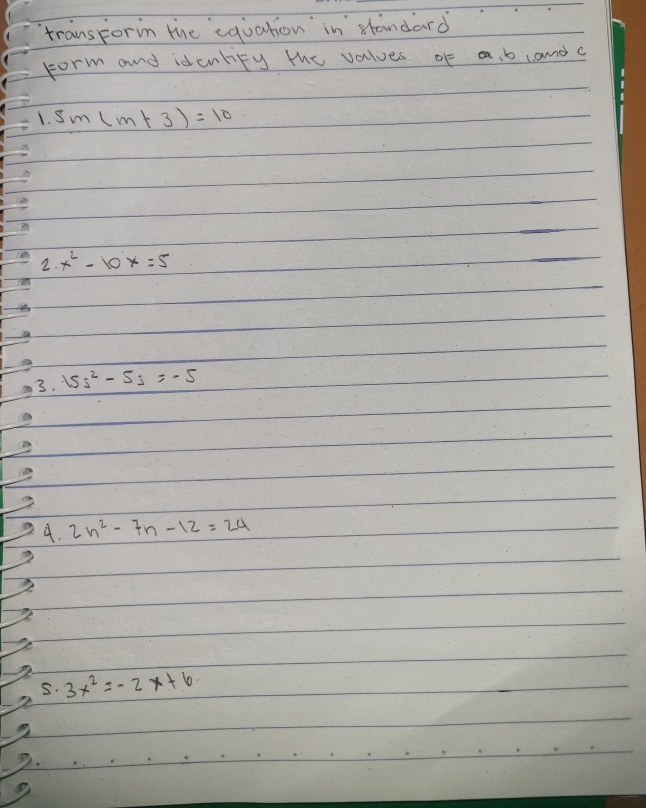 transform the equation in standard
form and identify the values of a, b, and c
1. 5m (m + 3) = 10
2. x² - 10x = 5
3. 15s² - 5s = -5
4. 2n² - 7n - 12 = 24
5. 3x² = -2x + 6